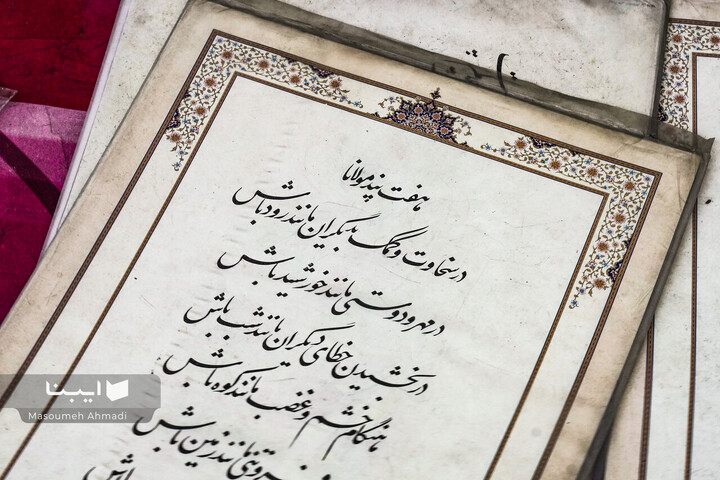 هفت پند مولانا
در سخاوت و کمک به دیگران مانند رود باش
در مهر و دوستی مانند خورشید باش
در بخشیدن خطای دیگران مانند شب باش
هنگام خشم و غضب مانند کوه باش
مانند زمین باش
باش
ایبنا
Masoumeh Ahmadi